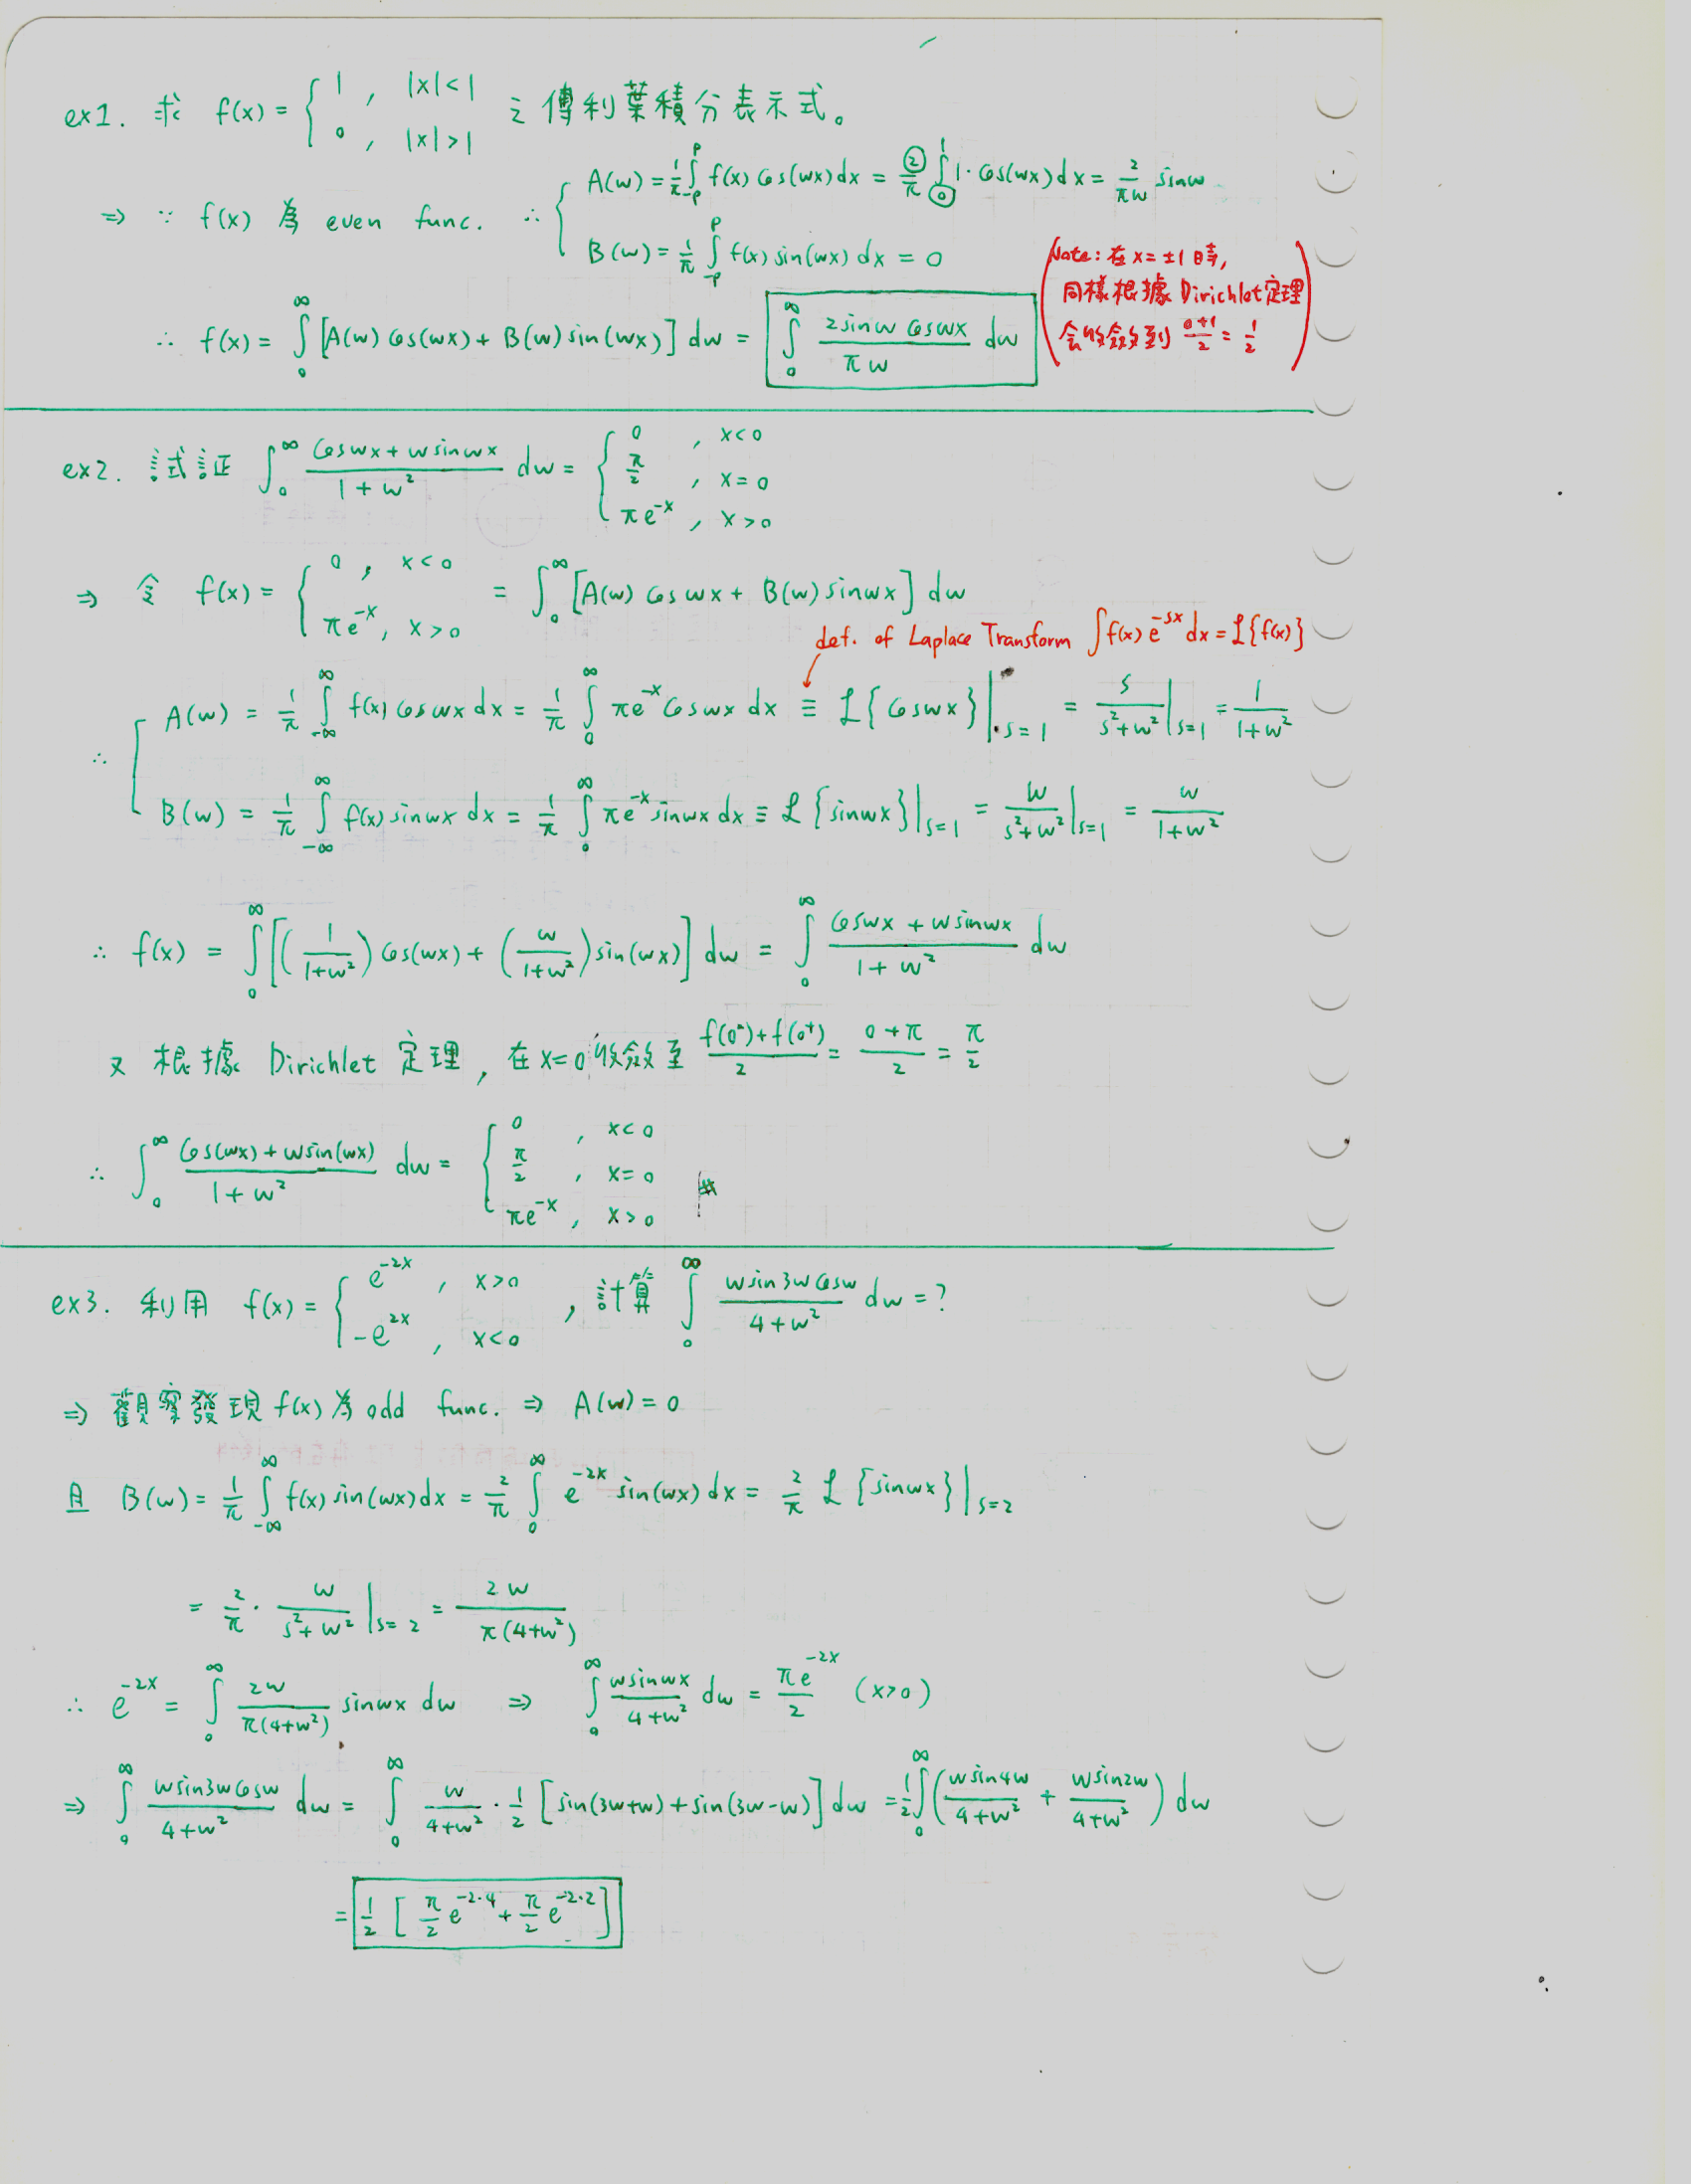 ex1. 求 f(x) = { 1 , |x|<1 ; 0 , |x|>1 之傅利葉積分表示式。
⇒ ∵ f(x) 為 even func. ∴ { A(w) = 1/π ∫_{-p}^{p} f(x) cos(wx) dx = 2/π ∫_0^1 1·cos(wx) dx = 2/(πw) sinw
B(w) = 1/π ∫_{-p}^{p} f(x) sin(wx) dx = 0
∴ f(x) = ∫_0^∞ [A(w) cos(wx) + B(w) sin(wx)] dw = ∫_0^∞ (2sinw coswx)/(πw) dw
(Note: 在 x = ±1 時,
同樣根據 Dirichlet 定理
會收斂到 (0+1)/2 = 1/2)
ex2. 試証 ∫_0^∞ (coswx + wsinwx)/(1+w²) dw = { 0 , x<0 ; π/2 , x=0 ; πe^{-x} , x>0
⇒ 令 f(x) = { 0 , x<0 ; πe^{-x} , x>0 = ∫_0^∞ [A(w) coswx + B(w) sinwx] dw
def. of Laplace Transform ∫f(x) e^{-sx} dx = ℒ{f(x)}
∴ { A(w) = 1/π ∫_{-∞}^{∞} f(x) coswx dx = 1/π ∫_0^∞ πe^{-x} coswx dx ≡ ℒ{coswx}|_{s=1} = s/(s²+w²)|_{s=1} = 1/(1+w²)
B(w) = 1/π ∫_{-∞}^{∞} f(x) sinwx dx = 1/π ∫_0^∞ πe^{-x} sinwx dx ≡ ℒ{sinwx}|_{s=1} = w/(s²+w²)|_{s=1} = w/(1+w²)
∴ f(x) = ∫_0^∞ [(1/(1+w²)) cos(wx) + (w/(1+w²)) sin(wx)] dw = ∫_0^∞ (coswx + wsinwx)/(1+w²) dw
又 根據 Dirichlet 定理, 在 x=0 收斂至 (f(0⁻)+f(0⁺))/2 = (0+π)/2 = π/2
∴ ∫_0^∞ (cos(wx) + wsin(wx))/(1+w²) dw = { 0 , x<0 ; π/2 , x=0 ; πe^{-x} , x>0 #
ex3. 利用 f(x) = { e^{-2x} , x>0 ; -e^{2x} , x<0 , 計算 ∫_0^∞ (wsin3w cosw)/(4+w²) dw = ?
⇒ 觀察發現 f(x) 為 odd func. ⇒ A(w) = 0
且 B(w) = 1/π ∫_{-∞}^{∞} f(x) sin(wx) dx = 2/π ∫_0^∞ e^{-2x} sin(wx) dx = 2/π ℒ{sinwx}|_{s=2}
= 2/π · w/(s²+w²)|_{s=2} = 2w/(π(4+w²))
∴ e^{-2x} = ∫_0^∞ 2w/(π(4+w²)) sinwx dw ⇒ ∫_0^∞ wsinwx/(4+w²) dw = πe^{-2x}/2 (x>0)
⇒ ∫_0^∞ (wsin3w cosw)/(4+w²) dw = ∫_0^∞ w/(4+w²) · 1/2 [sin(3w+w) + sin(3w-w)] dw = 1/2 ∫_0^∞ (wsin4w/(4+w²) + wsin2w/(4+w²)) dw
= 1/2 [π/2 e^{-2·4} + π/2 e^{-2·2}]